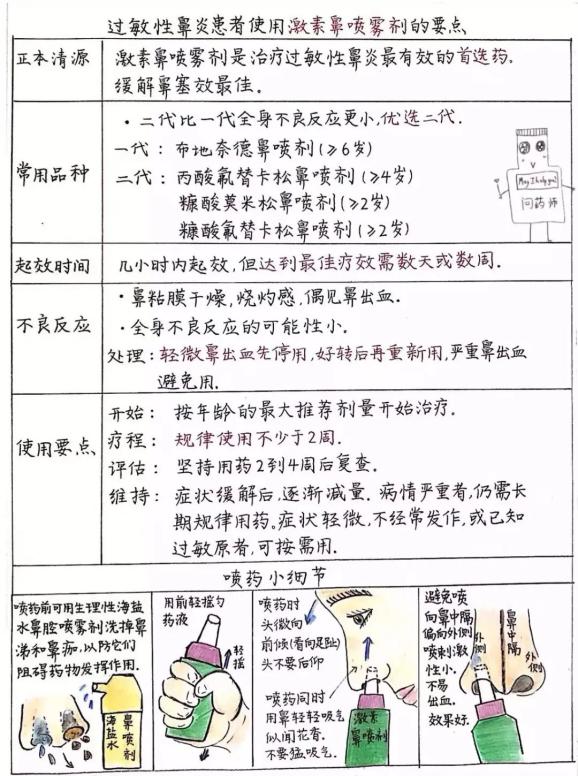 过敏性鼻炎患者使用激素鼻喷雾剂的要点
正本清源
激素鼻喷雾剂是治疗过敏性鼻炎最有效的首选药.
缓解鼻塞效最佳.
常用品种
·二代比一代全身不良反应更小,优选二代.
一代:布地奈德鼻喷剂(≥6岁)
二代:丙酸氟替卡松鼻喷剂(≥4岁)
糠酸莫米松鼻喷剂(≥2岁)
糠酸氟替卡松鼻喷剂(≥2岁)
May I help you?
问药师
起效时间
几小时内起效,但达到最佳疗效需数天或数周.
不良反应
·鼻粘膜干燥,烧灼感,偶见鼻出血.
·全身不良反应的可能性小.
处理:轻微鼻出血先停用,好转后再重新用,严重鼻出血
避免用.
使用要点
开始:按年龄的最大推荐剂量开始治疗.
疗程:规律使用不少于2周.
评估:坚持用药2到4周后复查.
维持:症状缓解后,逐渐减量.病情严重者,仍需长
期规律用药。症状轻微,不经常发作,或已知
过敏原者,可按需用.
喷药小细节
喷药前可用生理性海盐
水鼻腔喷雾剂洗掉鼻
涕和鼻痂,以防它们
阻碍药物发挥作用.
海盐水
鼻喷剂
用前轻摇匀
药液
轻摇
喷药时
头微向
前倾(看向足趾)
头不要后仰
喷药同时
用鼻轻轻吸气
似闻花香.
不要猛吸气.
激素
鼻喷剂
避免喷
向鼻中隔
偏向外侧
喷刺激
性小.
不易
出血.
效果好.
外侧
鼻中隔
外侧